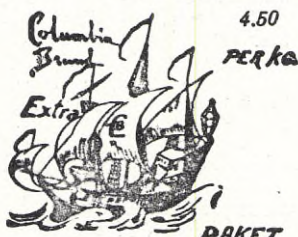 Columbia
Brand
Extra
CB
4.50
PER KG
PAKET